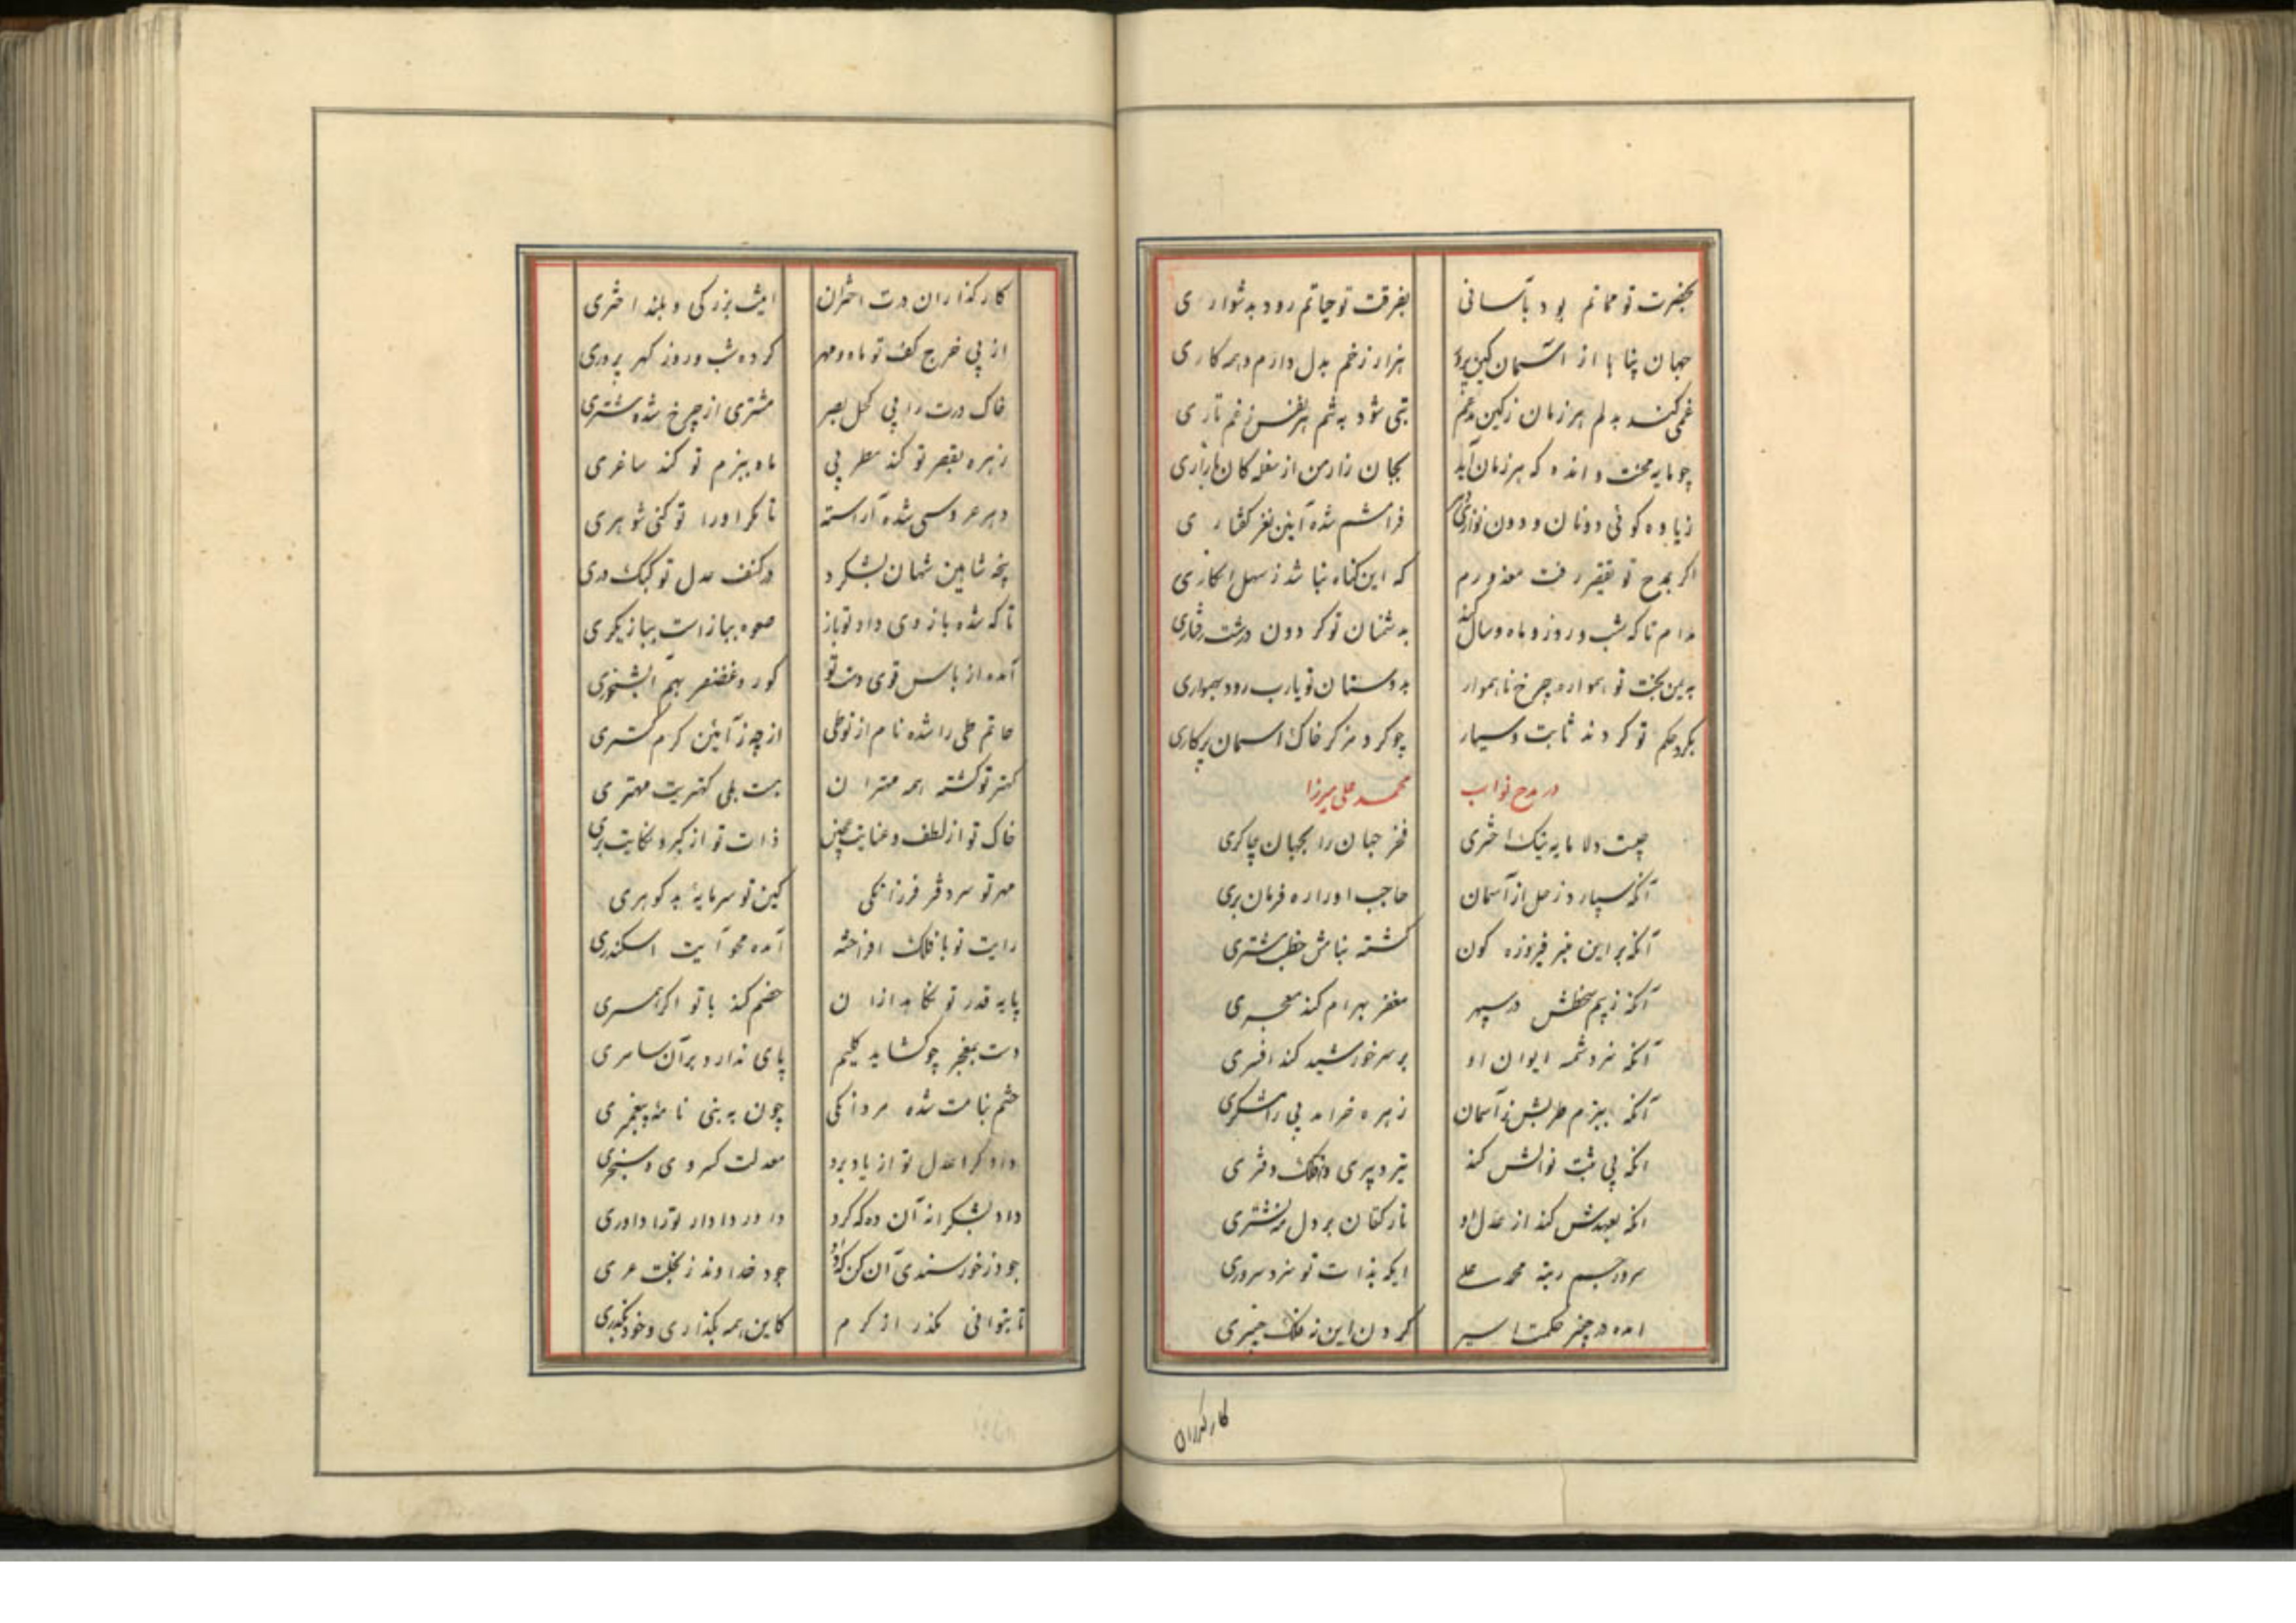 بحضرت تو مماتم بود بآسانی بفرقت تو حیاتم رود بدشواری
جهان پناها از آسمان کین پرور هزار زخم بدل دارم و همه کاری
غمی کند بدلم هر زمان زکین مدغم تبی شود به تنم هر نفس زغم تاری
چو مایه محنت و انده که هر زمان آید بجان زار من از سفله کان بازاری
زیاوه کوئی دونان و دون نوازی دهر فرامشم شده آیین نغز کفتاری
اکر بمدح تو تقصیر رفت معذورم که این کناه نباشد ز سهل انکاری
مدام تا که شب و روز و ماه و سال کند بدشمنان تو کردون درشت رفتاری
به یمن بخت تو همواره چرخ ناهموار بدوستان تو یارب رود بهمواری
بکرد حکم تو کردند ثابت و سیار چو کرد مرکز خاک اسمان پرکاری
در مدح نواب محمد علی میرزا
چیست دلا مایه نیک اختری فخر جهان را بجهان چاکری
آنکه سپارد زحل از آسمان حاجب او را ره فرمان بری
آنکه بر این منبر فیروزه کون کشته بنامش خطب مشتری
آنکه زبیم سخطش در سپهر مغفر بهرام کند معجری
آنکه سزد شمسه ایوان او بر سر خورشید کند افسری
آنکه ببزم طربش ز آسمان زهره خرامد پی رامشکری
انکه پی ثبت نوالش کند تیر دبیری و فلک دفتری
انکه بعهدش کند از عدل او نار کفان بر دل نشتری
سرور جم رتبه محمد علی ایکه بذات تو سزد سروری
امده در چنبر حکمت اسیر کردن این نه فلک چنبری
کارکذران
کارکذاران درت اختران اینت بزرکی و بلند اختری
از پی خرج کف تو ماه و مهر کرده شب و روز کهر پروری
خاک درت را پی کحل بصر مشتری از چرخ شده مشتری
زهره بقصر تو کند مطربی ماه ببزم تو کند ساغری
دهر عروسی شده آراسته تا مکر او را تو کنی شوهری
پنجه شاهین شهان بشکرد در کنف عدل تو کبک دری
تا که شده بازوی داد تو باز صعوه ببازاست ببازیکری
آمده از باس قوی دست تو کور و غضنفر بهم ابشخوری
حاتم طی را شده نام از تو طی از چه ز آئین کرم کستری
کهتر تو کشته همه مهتران هست بلی کهتریت مهتری
خاک تو از لطف و عنایت عجین ذات تو از کبر و نکایت بری
مهر تو سر دفتر فرزانکی کین تو سرمایهٔ بد کوهری
رایت تو با فلک افراخته آمده محو آیت اسکندری
پایه قدر تو نکاهد ازان خصم کند با تو اکر همسری
دست بمعجز چو کشاید کلیم پای ندارد بر آن سامری
ختم بنامت شده مردانکی چون به بنی نامهٔ پیغمبری
دادکرا عدل تو از یاد برد معدلت کسروی و سنجری
داد بشکرانه آن ده که کرد داور دادار تو را داوری
جود زخورسندی آن کن که کرد جود خداوند زبخلت عری
تا بتوانی مکذر از کرم کاین همه بکذاری و خود بکذری